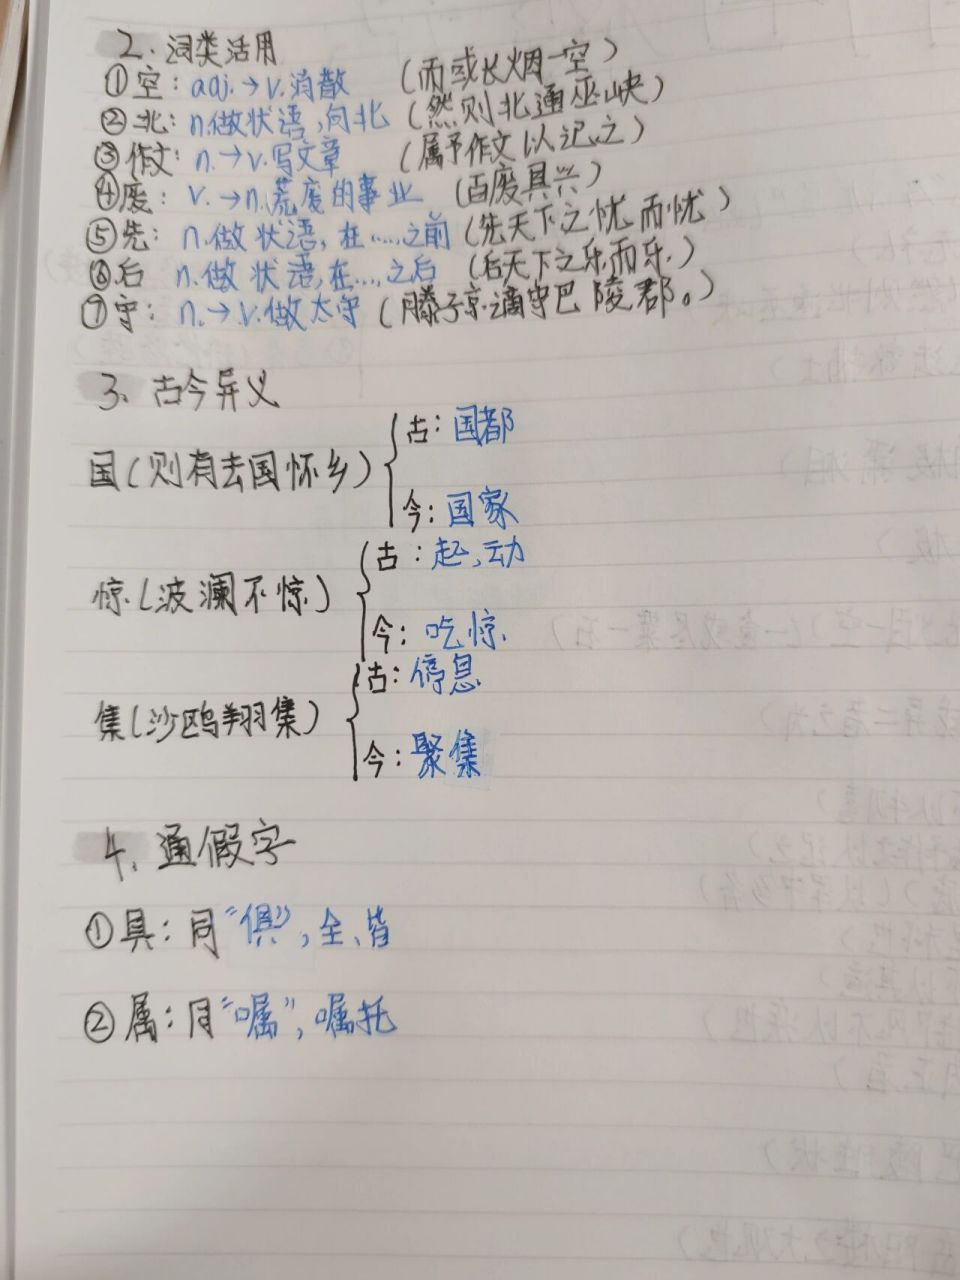 2. 词类活用
①空：adj.→v.消散 （而或长烟一空）
②北：n.做状语，向北 （然则北通巫峡）
③作文：n.→v.写文章 （属予作文以记之）
④废：v.→n.荒废的事业 （百废具兴）
⑤先：n.做状语，在……之前（先天下之忧而忧）
⑥后 n.做状语，在…，之后 （后天下之乐而乐）
⑦守：n.→v.做太守（滕子京谪守巴陵郡。）
3、古今异义
古：国都
国（则有去国怀乡）
今：国家
古：起、动
惊（波澜不惊）
今：吃惊
古：停息
集（沙鸥翔集）
今：聚集
4、通假字
①具：同“俱”，全、皆
②属：同“嘱”，嘱托